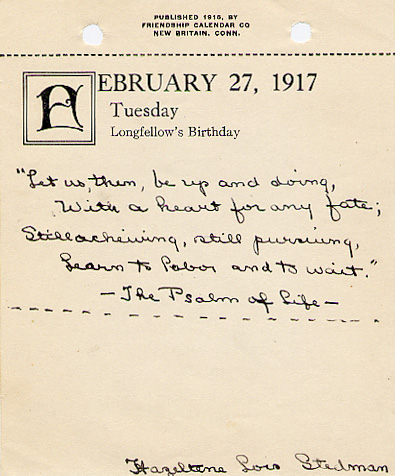 PUBLISHED 1915, BY
FRIENDSHIP CALENDAR CO
NEW BRITAIN, CONN.
FEBRUARY 27, 1917
Tuesday
Longfellow's Birthday
"Let us, then, be up and doing,
With a heart for any fate;
Still acheiving, still pursuing,
Learn to labor and to wait."
— The Psalm of Life —
Hazeltene Lois Stedman